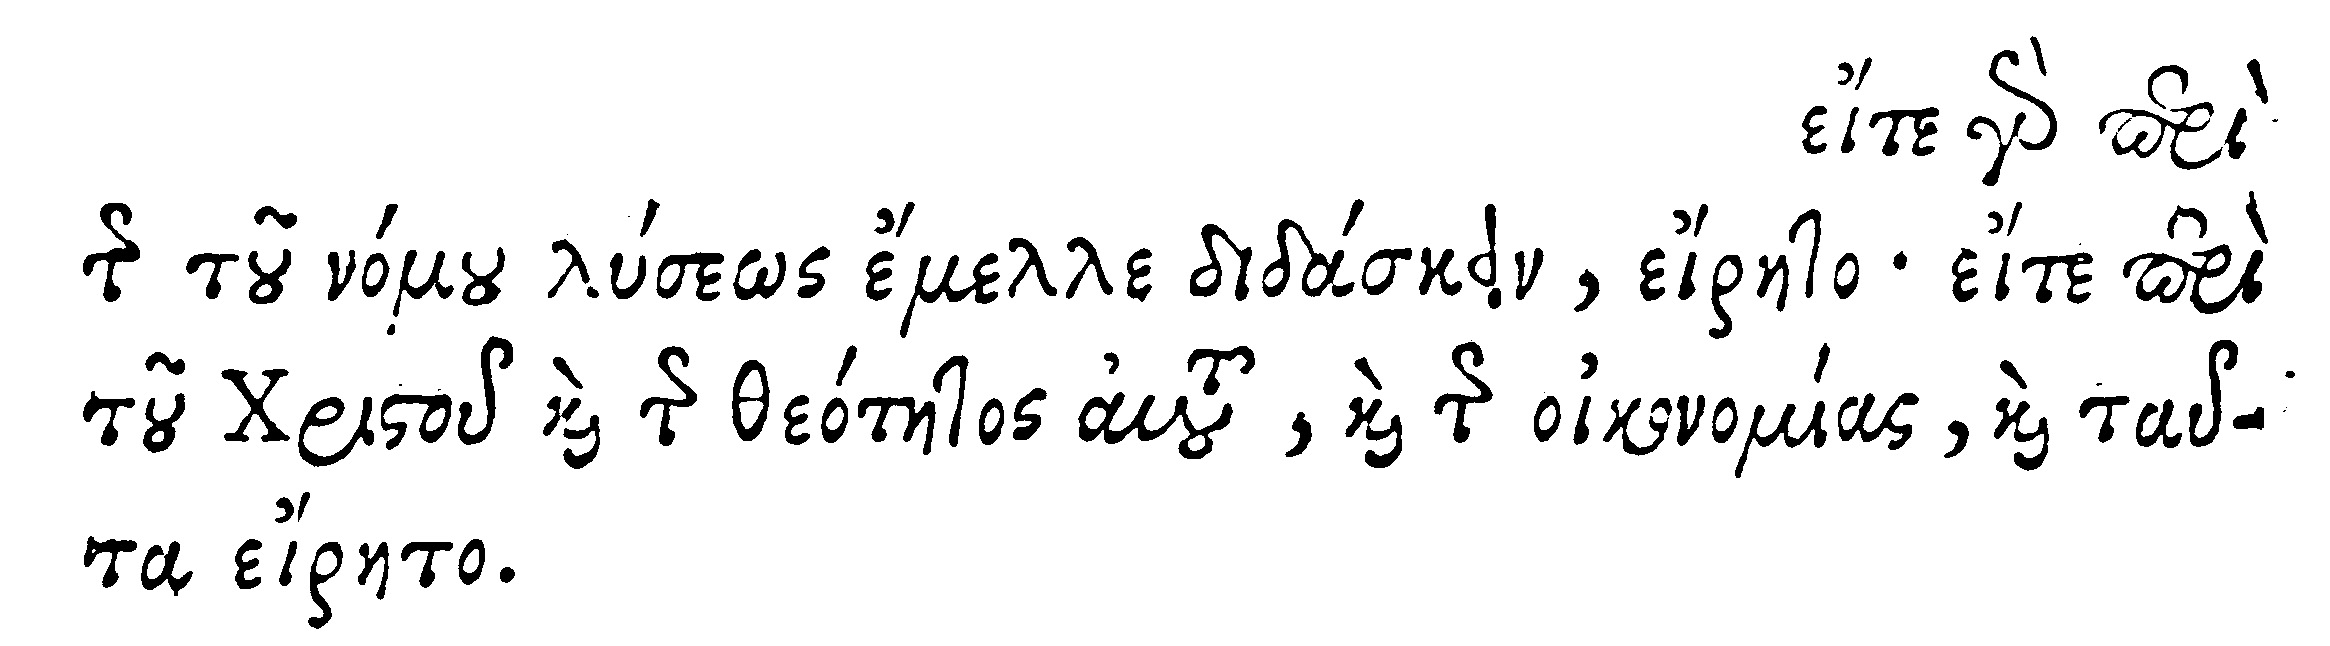 εἴτε γὰρ περὶ
τῆς τοῦ νόμου λύσεως ἔμελλε διδάσκειν, εἴρητο· εἴτε περὶ
τοῦ Χριστοῦ καὶ τῆς θεότητος αὐτοῦ, καὶ τῆς οἰκονομίας, καὶ ταῦ-
τα εἴρητο.